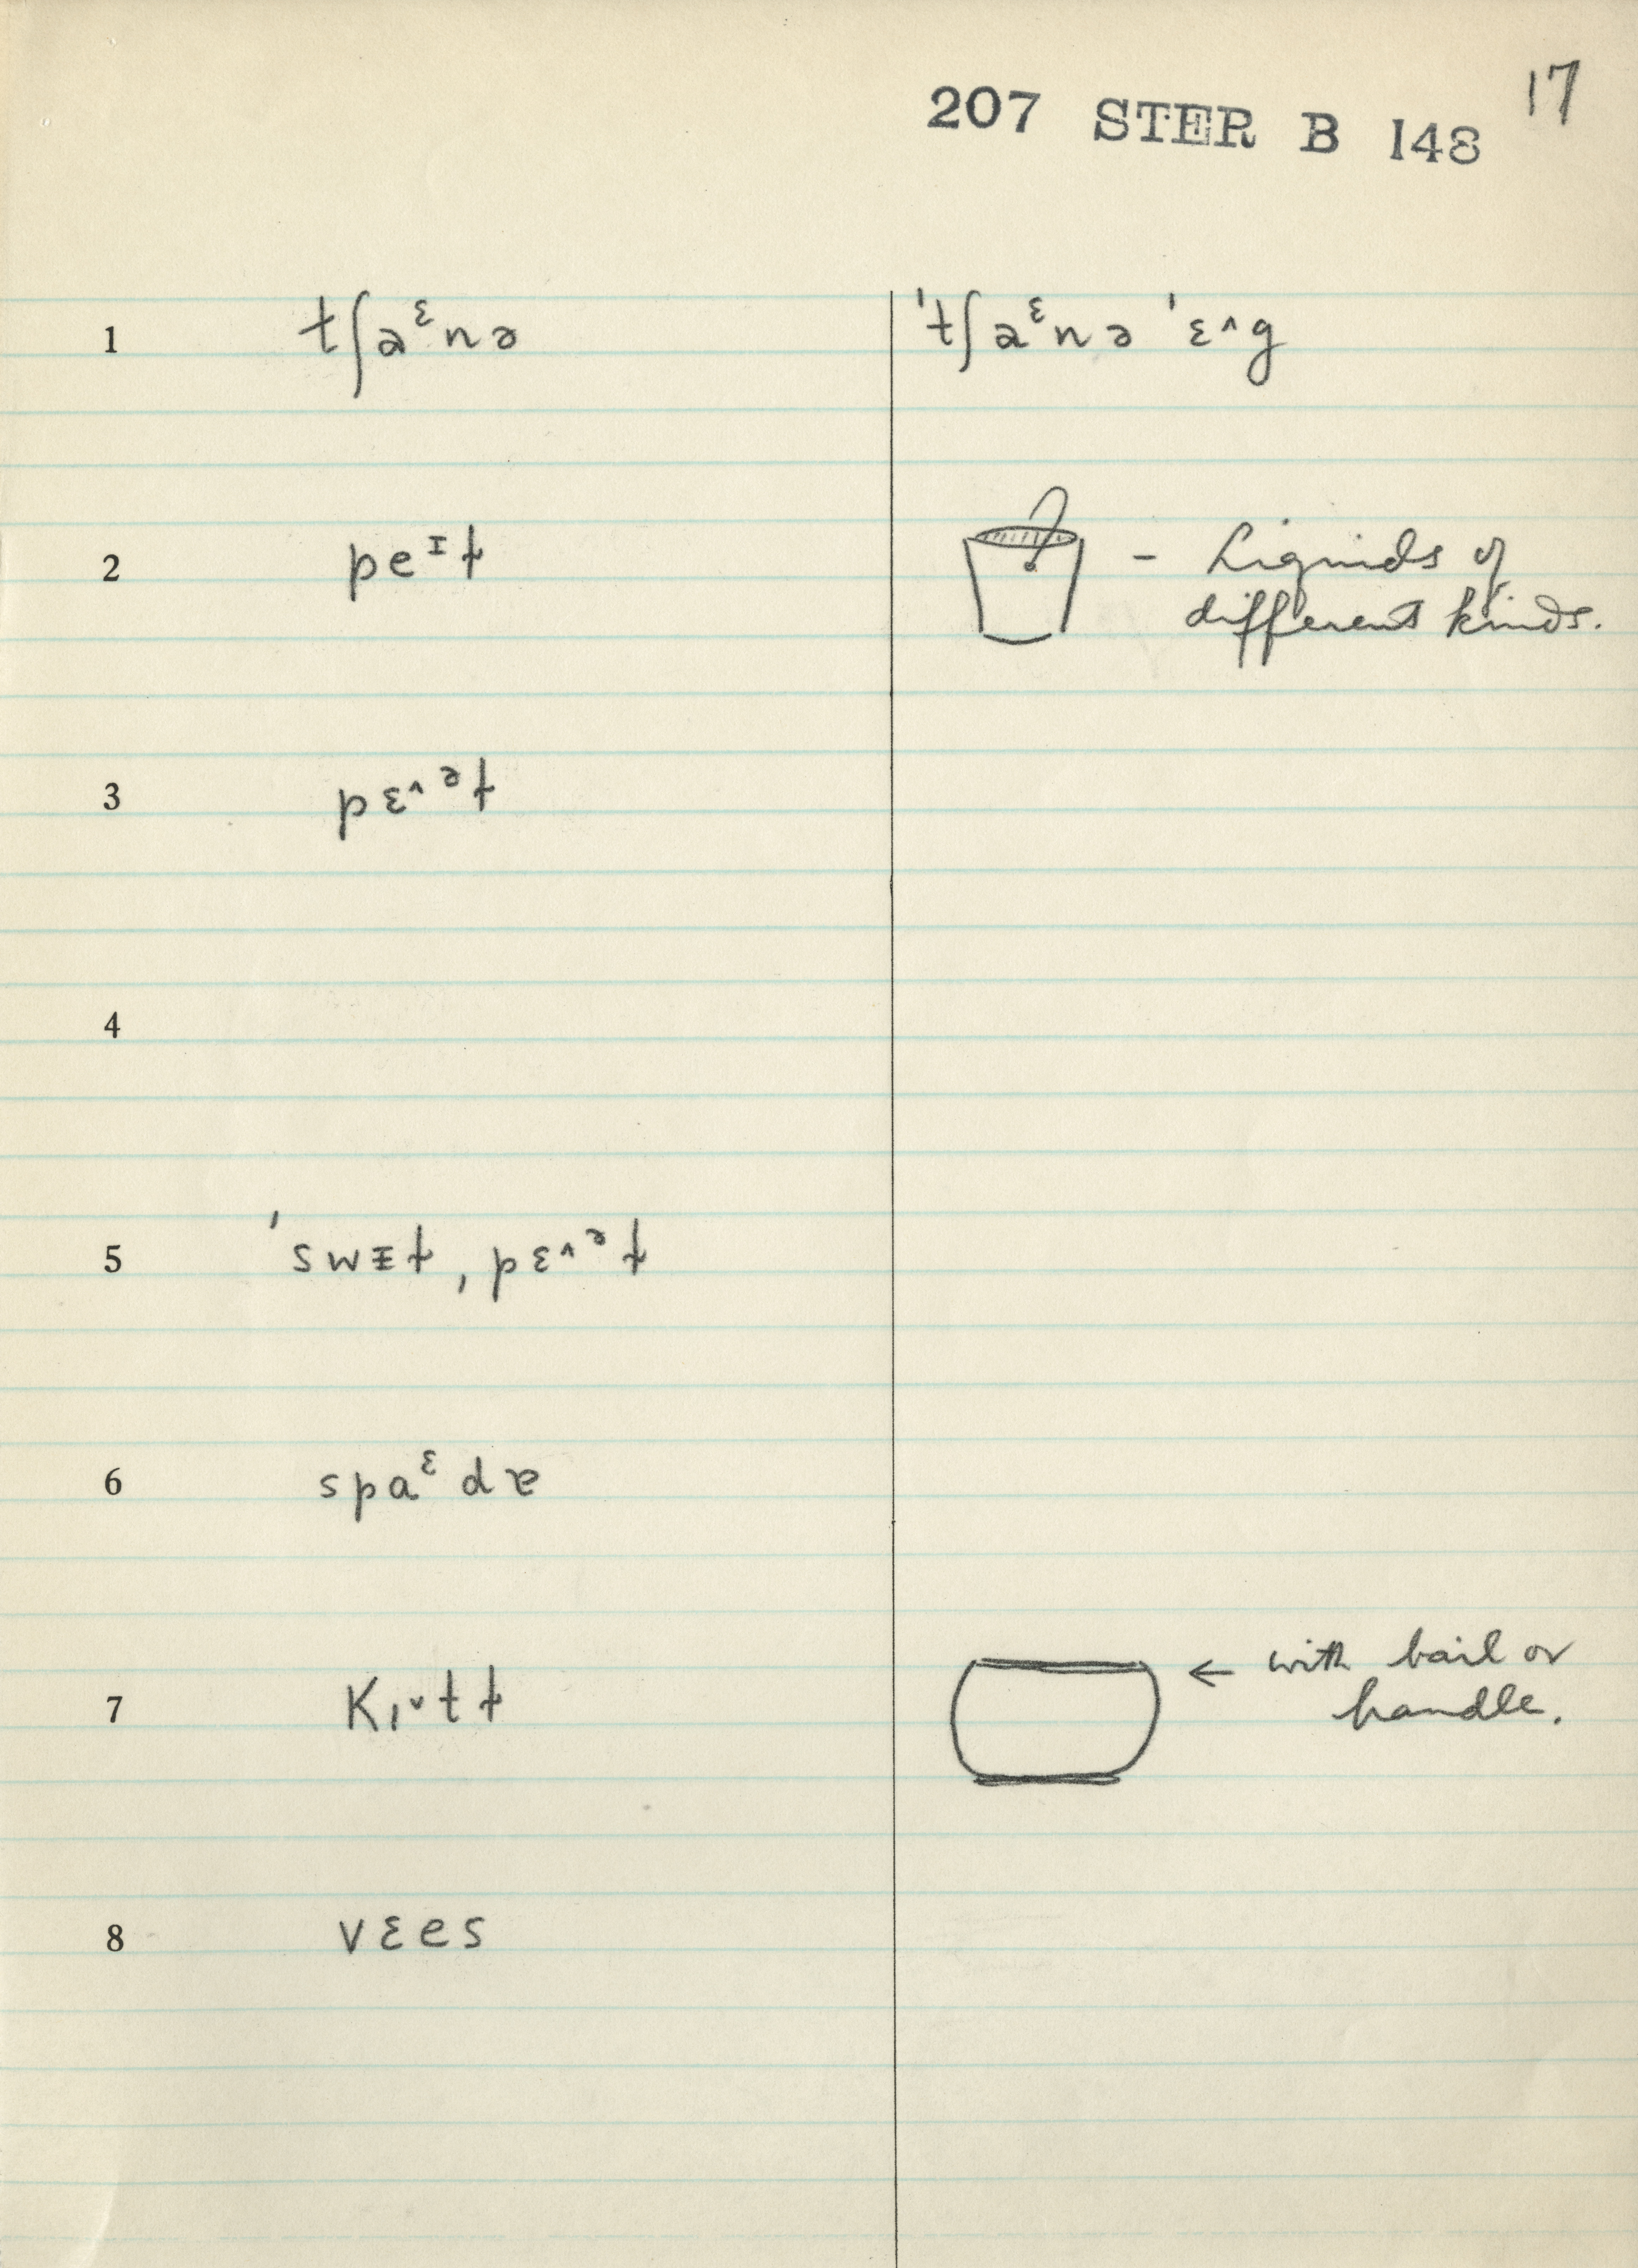 17
207 STER B 148
1 tʃaᵋnə 'tʃaᵋnə 'ɛ^g
2 peᶦɫ – Liquids of
different kinds.
3 pɛ^ᵊɫ
4
5 'swᵻɫ, pɛ^ᵊɫ
6 spaᵋdɚ
7 Kɪˇtɫ ← with bail or
handle.
8 vɛes